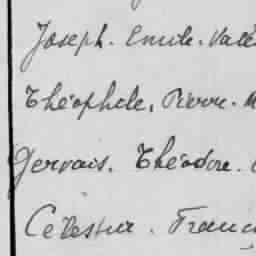 Joseph. Emile. Valè
Théophile, Pierre. M
Gervais. Théodore.
Célestin. Franç